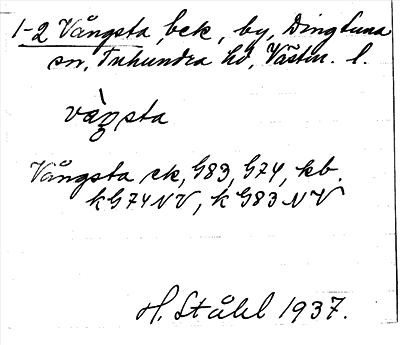 1-2 Vångsta, bek, by, Dingtuna
sn, Tuhundra hd, Västm. l.
vàŋsta
Vångsta ek, G83, G74, kb.
kG74NV, kG83NV
H. Ståhl 1937.